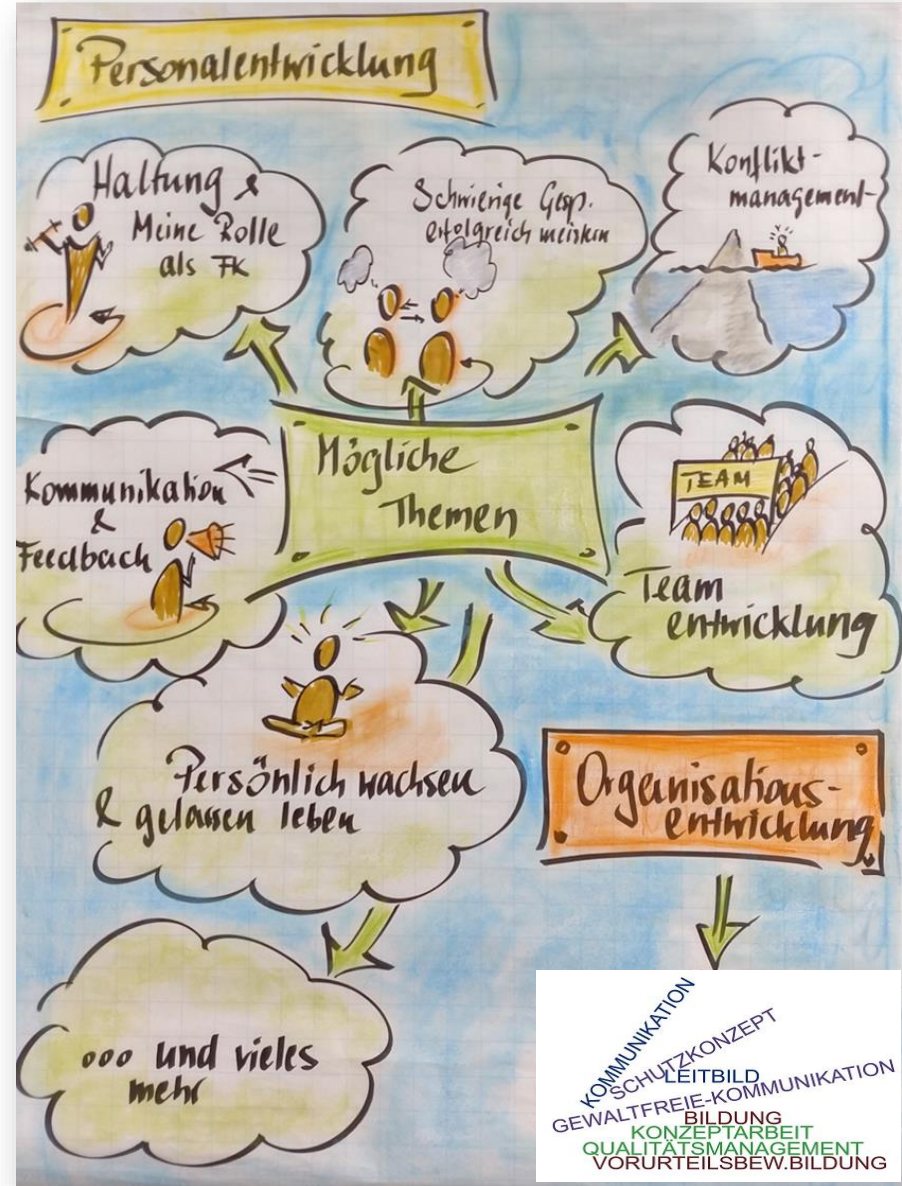 Personalentwicklung
Haltung &
Meine Rolle
als FK
Schwierige Gesp.
erfolgreich meistern
Konflikt-
management
Mögliche
Themen
Kommunikation
&
Feedback
TEAM
Team
entwicklung
Persönlich wachsen
& gelassen leben
Organisations-
entwicklung
... und vieles
mehr
KOMMUNIKATION
SCHUTZKONZEPT
LEITBILD
GEWALTFREIE-KOMMUNIKATION
BILDUNG
KONZEPTARBEIT
QUALITÄTSMANAGEMENT
VORURTEILSBEW.BILDUNG